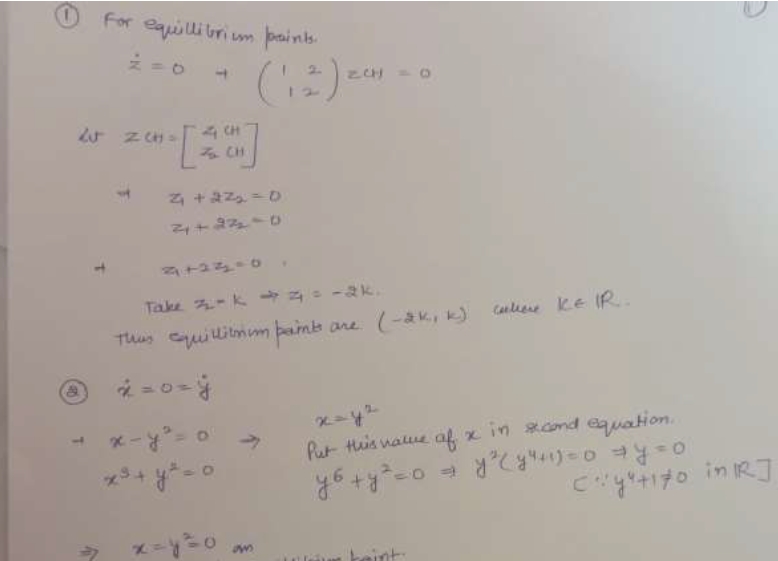 ① For equillibrium points.
ż = 0 → ( 1 2 / 1 2 ) z(t) = 0
Let z(t) = [ z₁(t) / z₂(t) ]
→ z₁ + 2z₂ = 0
z₁ + 2z₂ = 0
→ z₁ + 2z₂ = 0.
Take z₂ = k ⇒ z₁ = -2k.
Thus equillibrium points are (-2k, k) where k ∈ ℝ.
② ẋ = 0 = ẏ
→ x - y² = 0 → x = y²
Put this value of x in second equation.
x³ + y² = 0
y⁶ + y² = 0 ⇒ y²(y⁴+1) = 0 ⇒ y = 0
[∵ y⁴+1 ≠ 0 in ℝ]
⇒ x = y² = 0
point.